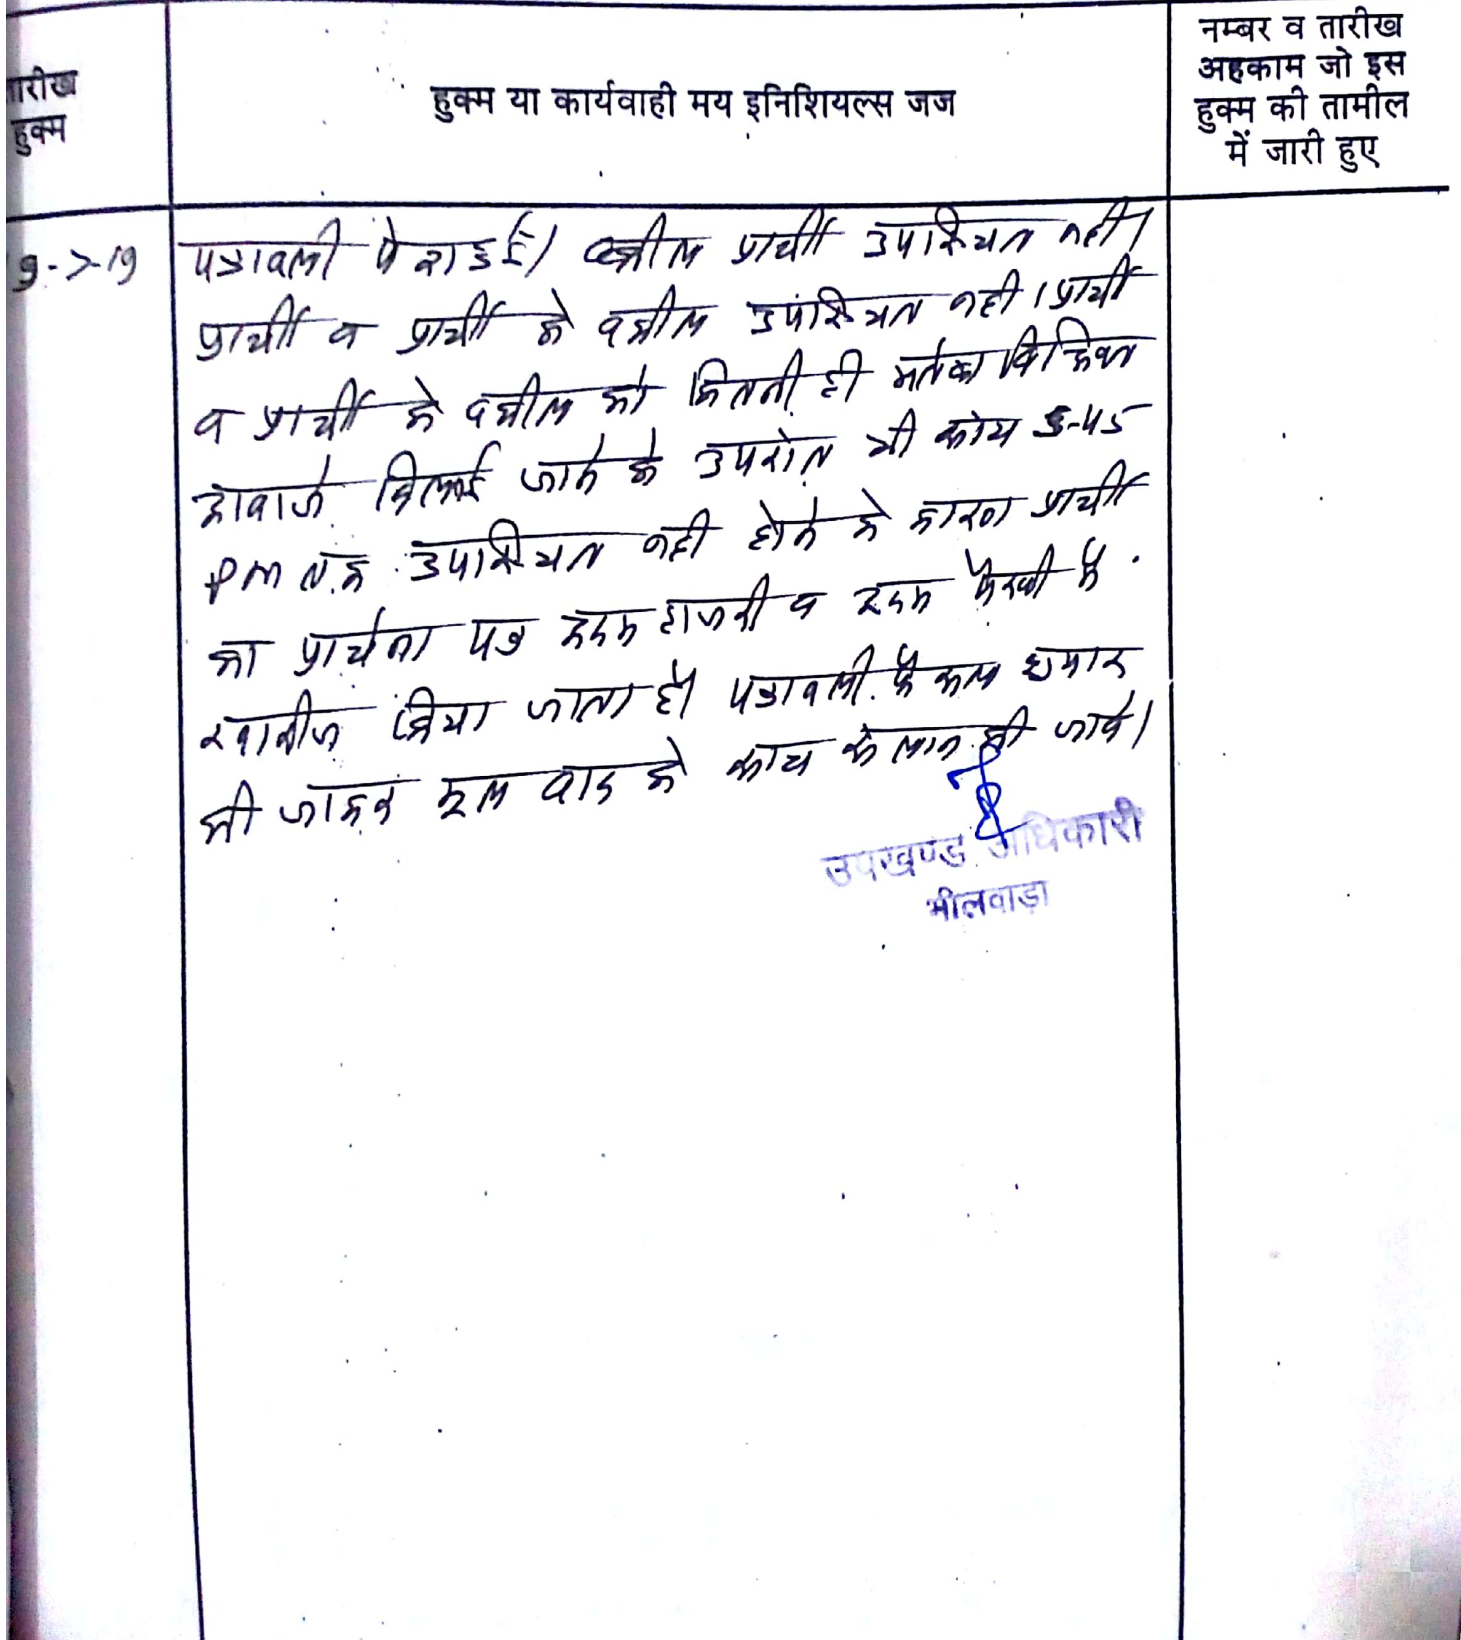 तारीख
हुक्म
हुक्म या कार्यवाही मय इनिशियल्स जज
नम्बर व तारीख
अहकाम जो इस
हुक्म की तामील
में जारी हुए
पत्रावली पेश हुई। वकील प्रार्थी उपस्थित नही।
प्रार्थी व प्रार्थी के वकील उपस्थित नही। प्रार्थी
व प्रार्थी के वकील को कितनी ही
आवाजे दिलाई जाने के उपरांत भी 5-45
PM तक उपस्थित नही होने के कारण प्रार्थी
का प्रार्थना पत्र अदम हाजरी व अदम पैरवी मे
खारीज किया जाता है। पत्रावली फैसल शुमार
की जाकर मूल वाद के साथ की जावे।
उपखण्ड अधिकारी
भीलवाड़ा